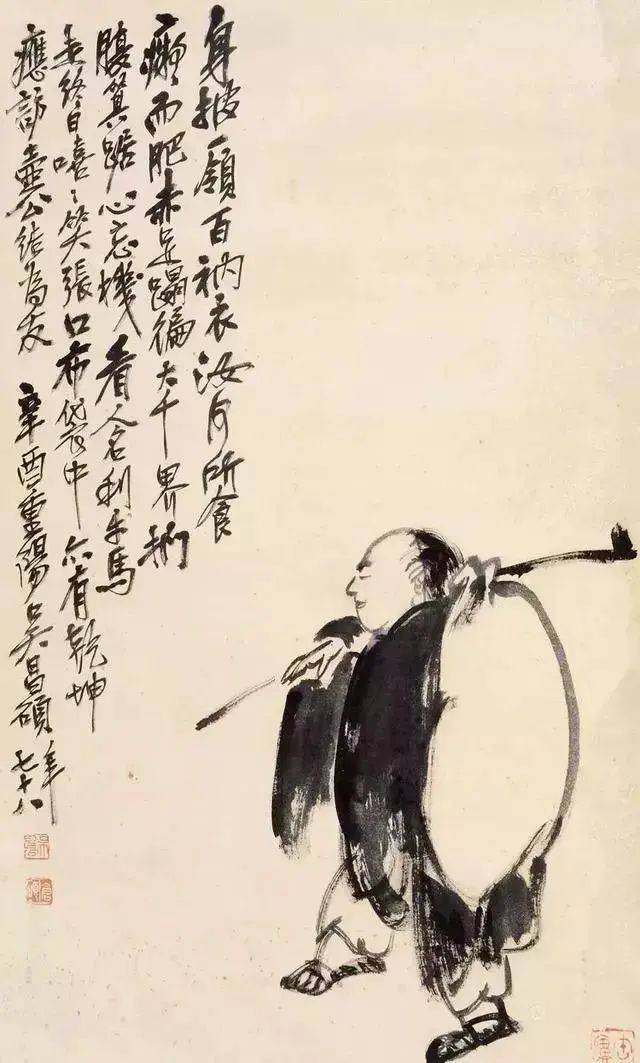 身披一領百衲衣汝何所食
癡而肥赤足蹋徧大千界捫
腹箕踞心忘機看人名利牛馬
走終日嘻〻笑張口布袋中亦有乾坤
應許壺公結為友 辛酉重陽吳昌碩年
七十八